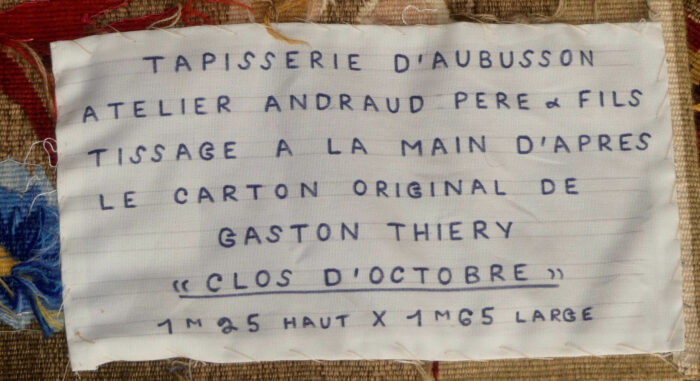 TAPISSERIE D'AUBUSSON
ATELIER ANDRAUD PERE & FILS
TISSAGE A LA MAIN D'APRES
LE CARTON ORIGINAL DE
GASTON THIERY
« CLOS D'OCTOBRE »
1M25 HAUT X 1M65 LARGE